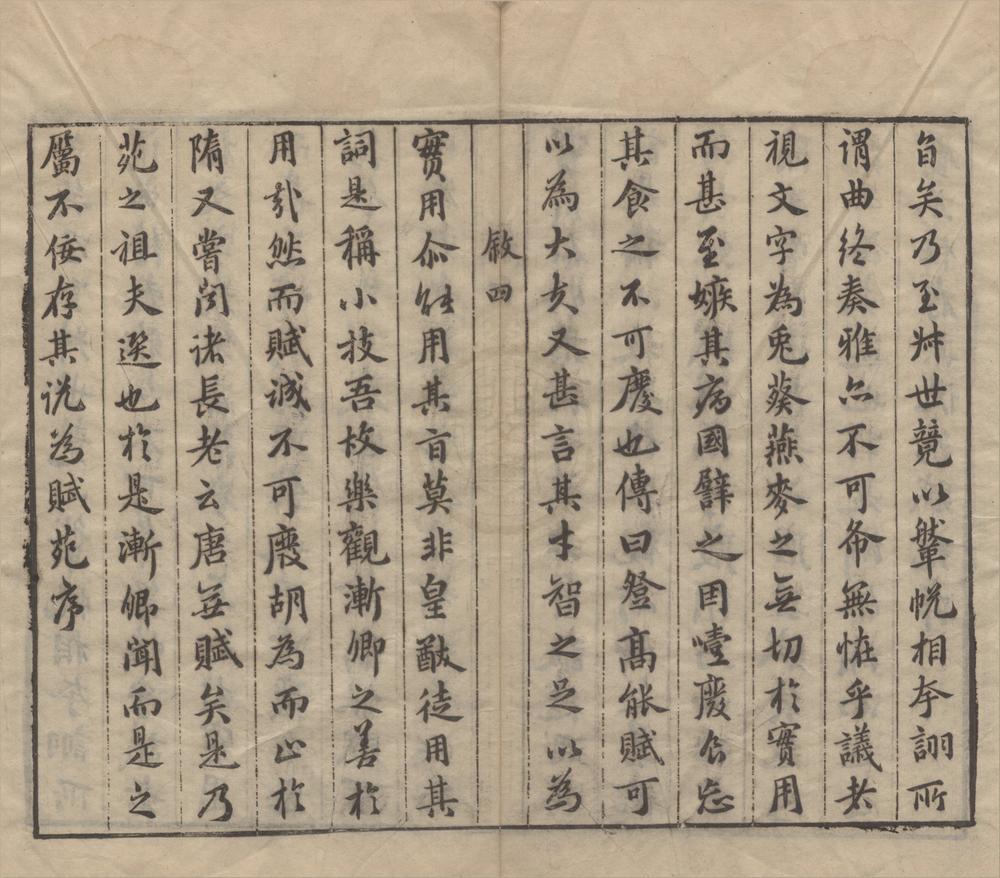 旨矣乃至艸世競以鞶帨相夸詡所
謂曲終奏雅亦不可希無恠乎議者
視文字為兎葵燕麥之無切於實用
而甚至嫉其病國譬之因噎廢食忘
其食之不可廢也傳曰登高能賦可
以為大夫又甚言其才智之足以為
敘四
實用而能用其旨莫非皇猷徒用其
詞是稱小技吾故樂觀漸卿之善於
用哉然而賦誠不可廢胡為而止於
隋又嘗聞諸長老云唐無賦矣是乃
苑之祖夫選也於是漸卿聞而是之
屬不佞存其說為賦苑序